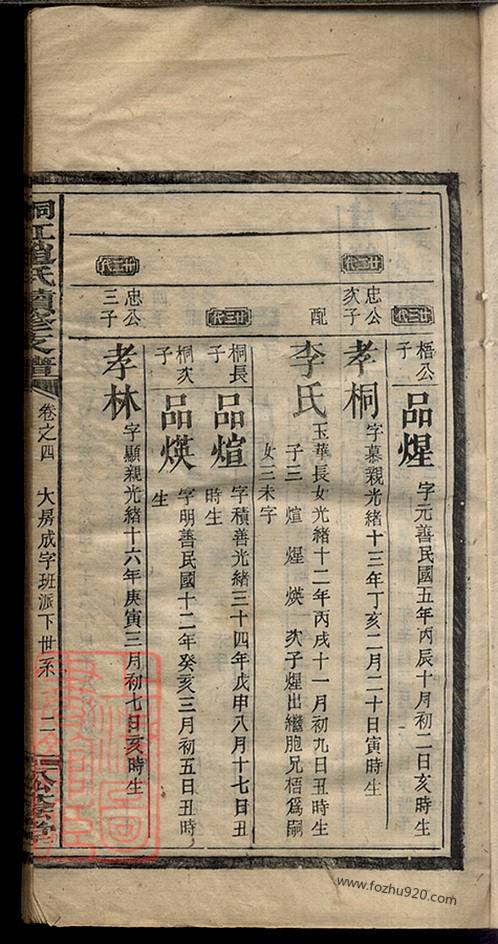 廿三代
梧公子
品煋
字元善民國五年丙辰十月初二日亥時生
廿二代
忠公次子
孝桐
字慕親光緒十三年丁亥二月二十日寅時生
配
李氏
玉華長女光緒十二年丙戌十一月初九日丑時生
子三 煊 煋 煐 次子煋出繼胞兄梧為嗣
女三未字
廿三代
桐長子
品煊
字積善光緒三十四年戊申八月十七日丑時生
桐次子
品煐
字明善民國十二年癸亥三月初五日丑時生
廿二代
忠公三子
孝林
字顯親光緒十六年庚寅三月初七日亥時生
趙氏續修支譜
卷之四 大房成字班派下世系 二
www.fozhu920.com